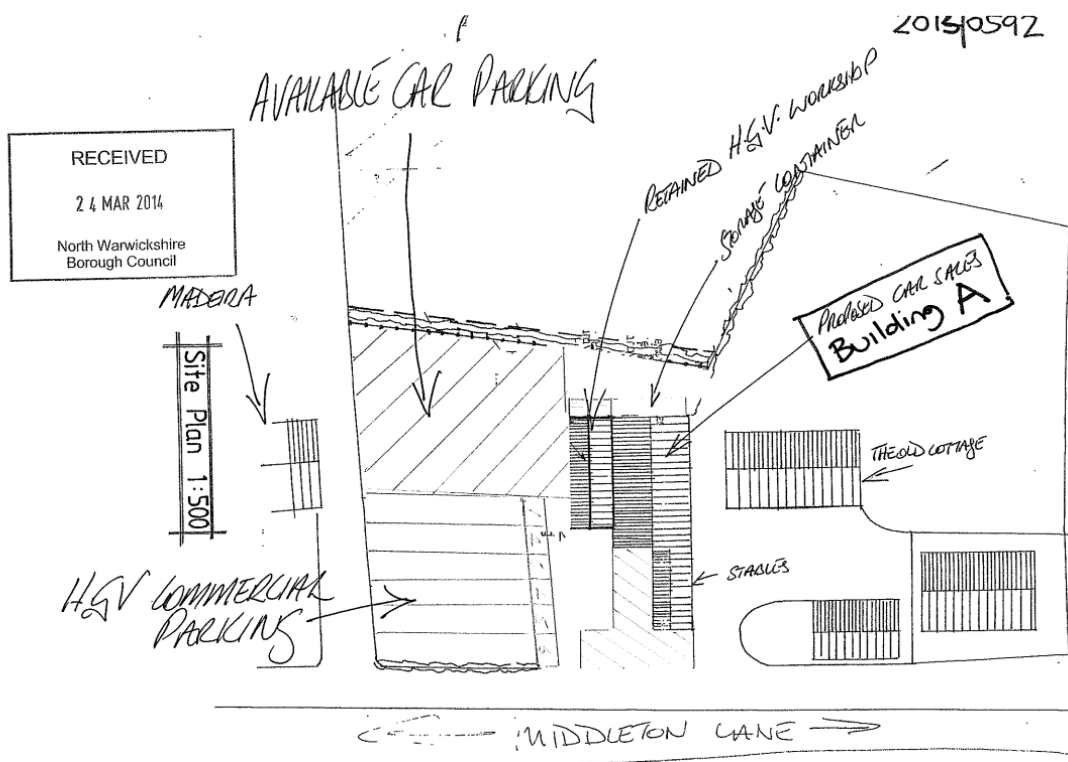 2013/0592
AVAILABLE CAR PARKING
RECEIVED
24 MAR 2014
North Warwickshire
Borough Council
RETAINED H.G.V. WORKSHOP
STORAGE CONTAINER
MADEIRA
PROPOSED CAR SALES
Building A
Site Plan 1:500
THE OLD COTTAGE
STABLES
HGV COMMERCIAL
PARKING
MIDDLETON LANE